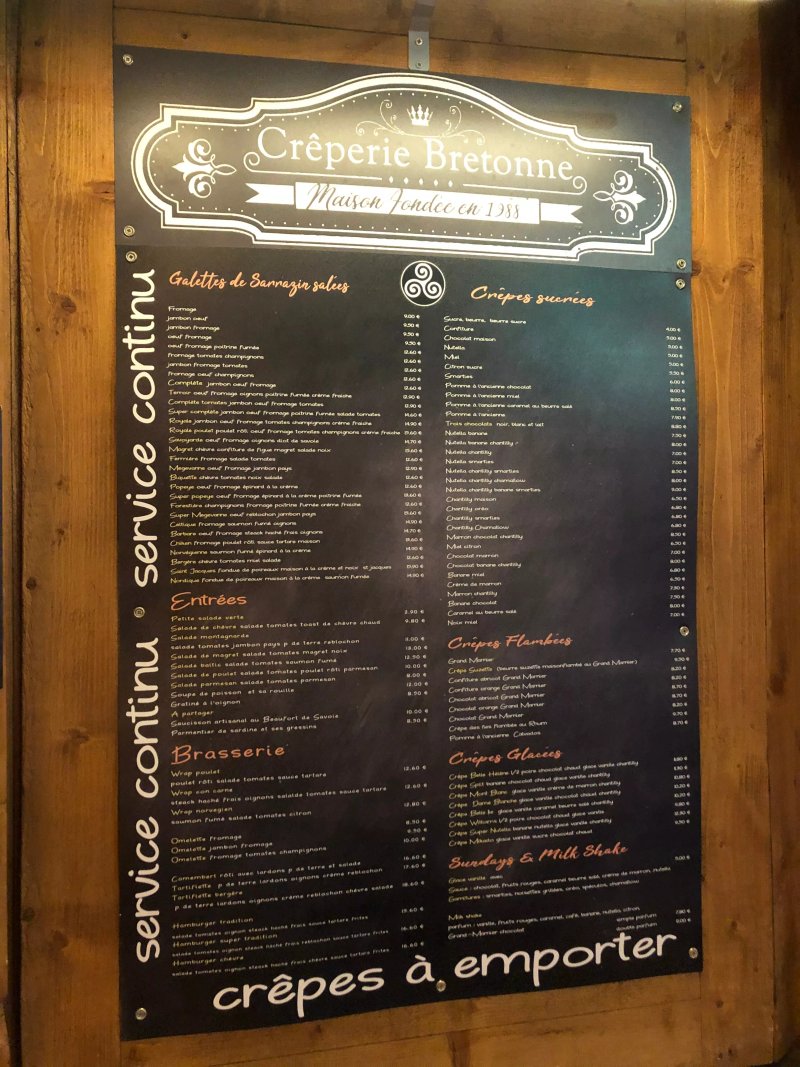 Crêperie Bretonne
Maison Fondée en 1988
service continu service continu service continu
Galettes de Sarrazin salées
Fromage 9.00 €
jambon oeuf 9.50 €
jambon fromage 9.50 €
oeuf fromage 9.50 €
oeuf fromage poitrine fumée 12.60 €
fromage tomates champignons 12.60 €
jambon fromage tomates 12.60 €
fromage oeuf champignons 12.60 €
Complète jambon oeuf fromage 12.60 €
Terroir oeuf fromage oignons poitrine fumée crème fraiche 12.90 €
Complète tomates jambon oeuf fromage tomates 12.90 €
Super complète jambon oeuf fromage poitrine fumée salade tomates 14.60 €
Royale jambon oeuf fromage tomates champignons crème fraiche 14.90 €
Royale poulet poulet rôti oeuf fromage tomates champignons crème fraiche 15.60 €
Savoyarde oeuf fromage oignons diot de savoie 14.70 €
Magret chèvre confiture de figue magret salade noix 15.60 €
Fermière fromage salade tomates 12.60 €
Megevanne oeuf fromage jambon pays 12.90 €
Biquette chèvre tomates noix salade 12.60 €
Popeye oeuf fromage épinard à la crème 12.60 €
Super popeye oeuf fromage épinard à la crème poitrine fumée
Forestière champignons fromage poitrine fumée crème fraiche 12.60 €
Super Megevanne oeuf reblochon jambon pays 15.60 €
Celtique fromage saumon fumé oignons 14.90 €
Barbare oeuf fromage steack haché frais oignons 14.70 €
Chilien fromage poulet rôti sauce tartare maison 15.60 €
Norvégienne saumon fumé épinard à la crème 14.90 €
Bergère chèvre tomates miel salade 12.60 €
Saint Jacques fondue de poireaux maison à la crème et noix st jacques 15.90 €
Nordique fondue de poireaux maison à la crème saumon fumée 14.90 €
Entrées
Petite salade verte 3.90 €
Salade de chèvre salade tomates toast de chèvre chaud 9.80 €
Salade montagnarde
salade tomates jambon pays p de terre reblochon 11.00 €
Salade de magret salade tomates magret noix 13.00 €
Salade baltic salade tomates saumon fumé 12.50 €
Salade de poulet salade tomates poulet rôti parmesan 10.00 €
Salade parmesan salade tomates parmesan 8.00 €
Soupe de poisson et sa rouille 12.00 €
Gratiné à l'oignon 8.50 €
A partager
Saucisson artisanal au Beaufort de Savoie 10.00 €
Parmentier de sardine et ses gressins 8.50 €
Brasserie
Wrap poulet
poulet rôti salade tomates sauce tartare 12.60 €
Wrap con carne
steack haché frais oignons salade tomates sauce tartare 12.60 €
Wrap norvegien
saumon fumé salade tomates citron 12.80 €
Omelette fromage 8.50 €
Omelette jambon fromage 9.50 €
Omelette fromage tomates champignons 10.00 €
Camembert rôti avec lardons p de terre et salade 16.60 €
Tartiflette p de terre lardons oignons crème reblochon 17.60 €
Tartiflette bergère
p de terre lardons oignons crème reblochon chèvre salade 18.60 €
Hamburger tradition
salade tomates oignon steack haché frais sauce tartare frites 15.60 €
Hamburger super tradition
salade tomates oignon steack haché frais reblochon sauce tartare frites 16.60 €
Hamburger chèvre
salade tomates oignon steack haché frais chèvre sauce tartare frites 16.60 €
Crêpes sucrées
Sucre, beurre, beurre sucre 4.00 €
Confiture 5.00 €
Chocolat maison 5.00 €
Nutella 5.00 €
Miel 5.00 €
Citron sucre
Smarties
Pomme à l'ancienne chocolat
Pomme à l'ancienne miel
Pomme à l'ancienne caramel au beurre salé
Pomme à l'ancienne
Trois chocolats noir, blanc et lait
Nutella banane
Nutella banane chantilly
Nutella chantilly
Nutella smarties
Nutella chantilly smarties
Nutella chantilly chamallow
Nutella chantilly banane smarties
Chantilly maison
Chantilly oréo
Chantilly smarties
Chantilly Chamallow
Marron chocolat chantilly
Miel citron
Chocolat marron
Chocolat banane chantilly
Banane miel
Crème de marron
Marron chantilly
Banane chocolat
Caramel au beurre salé
Noix miel
Crêpes Flambées
Grand Marnier 7.70 €
Crêpe Suzette (beurre suzette maison flambé au Grand Marnier) 9.50 €
Confiture abricot Grand Marnier 8.20 €
Confiture orange Grand Marnier 8.20 €
Chocolat abricot Grand Marnier 8.70 €
Chocolat orange Grand Marnier 8.70 €
Chocolat Grand Marnier 8.20 €
Crêpe des îles flambée au Rhum 9.70 €
Pomme à l'ancienne Calvados 8.70 €
Crêpes Glacées
Crêpe Belle Hélène 1/2 poire chocolat chaud glace vanille chantilly
Crêpe Split banane chocolat chaud glace vanille chantilly
Crêpe Mont Blanc glace vanille crème de marron chantilly
Crêpe Dame Blanche glace vanille chocolat chaud chantilly
Crêpe Belle Ile glace vanille caramel beurre salé chantilly
Crêpe Williams 1/2 poire chocolat chaud glace vanille
Crêpe Super Nutella banane nutella glace vanille chantilly
Crêpe Mikado glace vanille sauce chocolat chaud
Sundays & Milk Shake
Glace vanille avec 5.00 €
Sauce : chocolat, fruits rouges, caramel beurre salé, crème de marron, nutella
Garnitures : smarties, noisettes grillées, oréo, spéculos, chamallow
Milk shake
parfum : vanille, fruits rouges, caramel, café, banane, nutella, citron, simple parfum 7.80 €
Grand-Marnier chocolat double parfum 9.00 €
crêpes à emporter